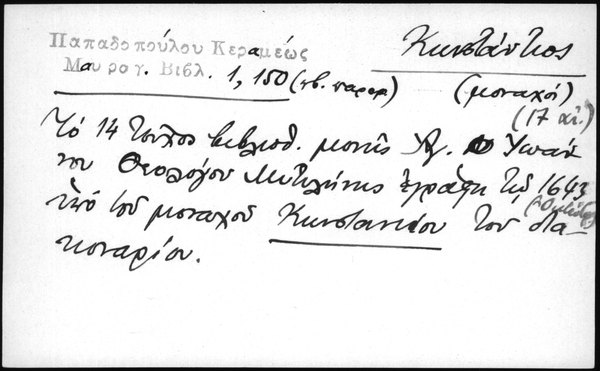 Παπαδοπούλου Κεραμέως
Μαυρογ. Βιβλ. 1, 150 (πβ. παραρ)
Κωνστάντιος
(μοναχοί)
(17 αἰ.)
Τό 14 βιβλιοθ. μονῆς Ἁγ. Ἰωάν
νου Θεολόγου Μυτιλήνης ἐγράφη τῷ 1643
ὑπό τοῦ μοναχοῦ Κωνσταντίου τοῦ δια-
κοναρίου.